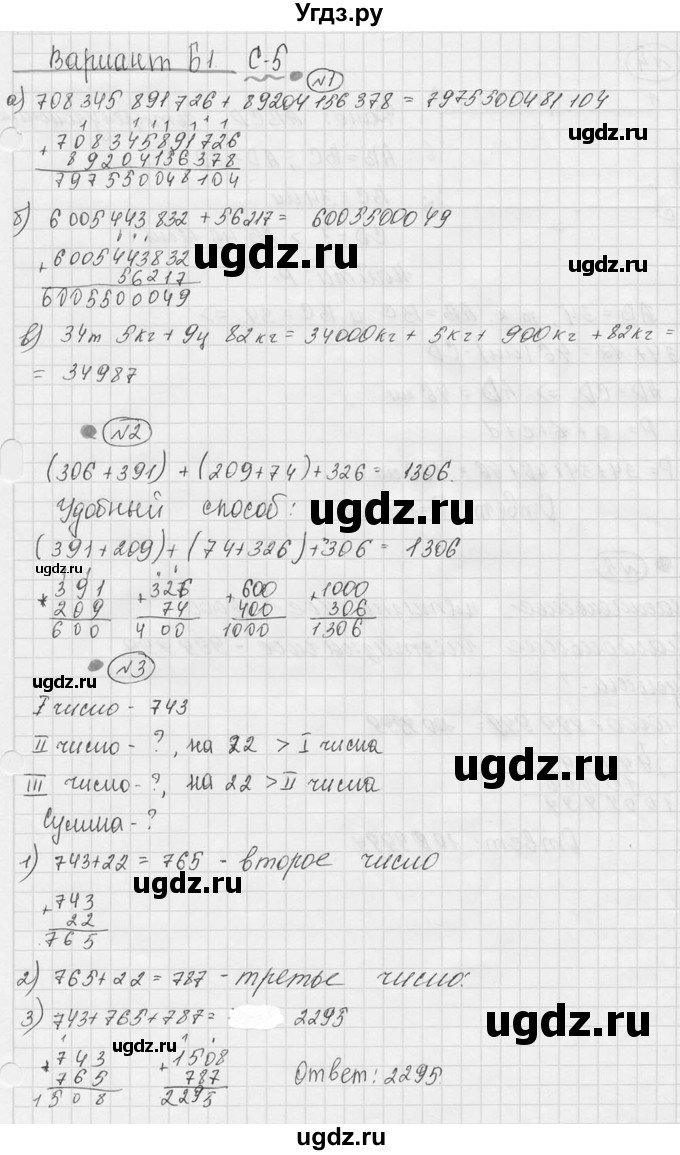 Угдз.ру
Вариант Б1 С-5
№1
а) 708 345 891 726 + 89204 156 378 = 7975500481104
+708345891726
89204156378
797550048104
б) 6 005 443 832 + 56217 = 6003500049
+6005443832
56217
6005500049
ugdz.ru
ugdz.ru
ugdz.ru
в) 34т 5кг + 9ц 82кг = 34000кг + 5кг + 900кг + 82кг =
= 34987
№2
(306 + 391) + (209+74) + 326 = 1306.
Удобный способ:
ugdz.ru
ugdz.ru
(391+209) + (74+326) + 306 = 1306
ugdz.ru
+391
209
600
+326
74
400
+600
400
1000
+1000
306
1306
№3
ugdz.ru
ugdz.ru
I число - 743
II число - ?, на 22 > I числа
ugdz.ru
III число - ?, на 22 > II числа
Сумма - ?
1) 743+22 = 765 - второе число
ugdz.ru
+743
22
765
2) 765+22 = 787 - третье число.
3) 743+765+787 = 2295
ugdz.ru
ugdz.ru
+743
765
1508
+1508
787
2295
Ответ: 2295
ugdz.ru